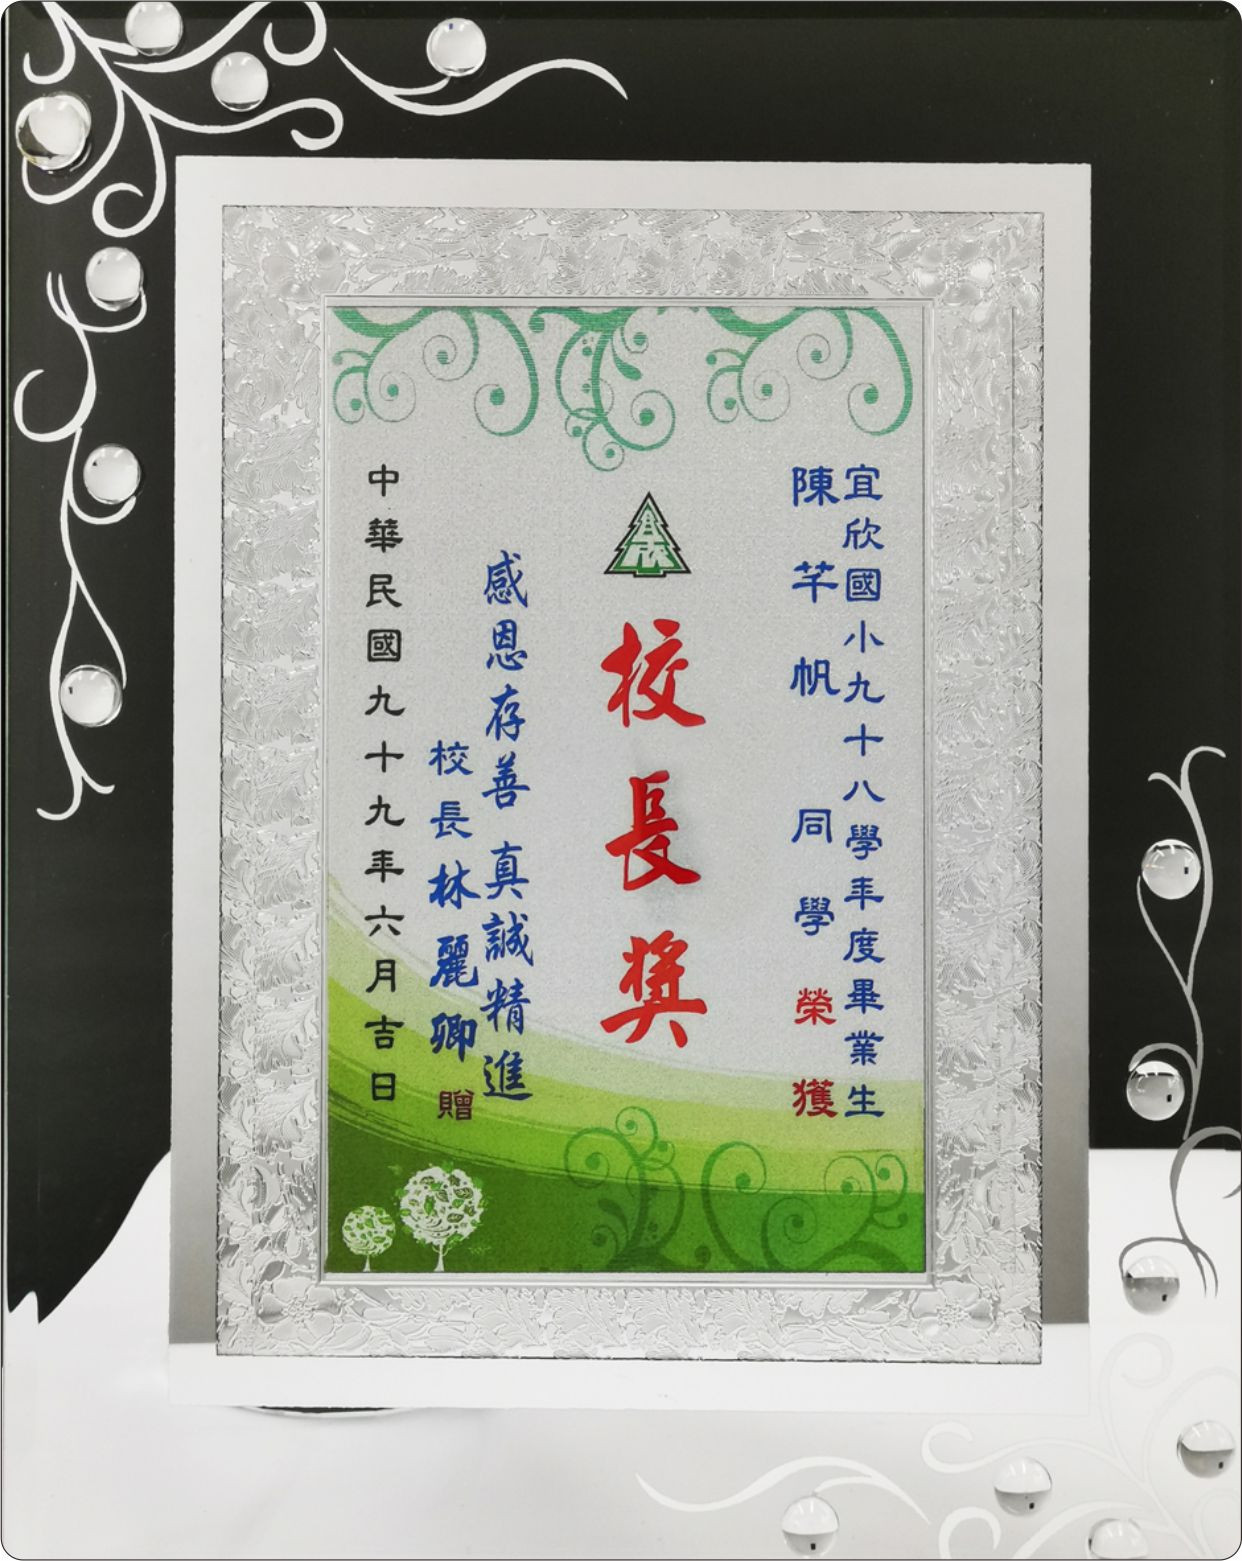 宜欣國小九十八學年度畢業生
陳芊帆 同學榮獲
宜欣
校長獎
感恩存善 真誠精進
校長林麗卿 贈
中華民國九十九年六月吉日